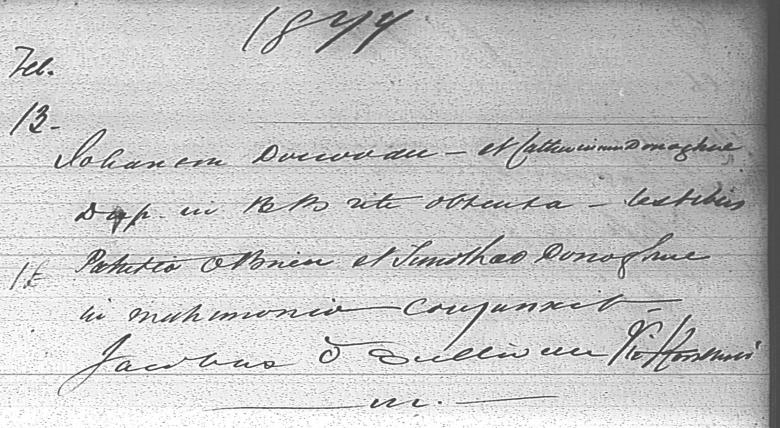 1877
Feb.
13.
Johannem Donovan - et Catherinam Donoghue
Disp. in BB rite obtenta - testibus
Patritio OBrien et Timotheo Donoghue
in matrimonio conjunxit -
Jacobus O Sullivan
m.